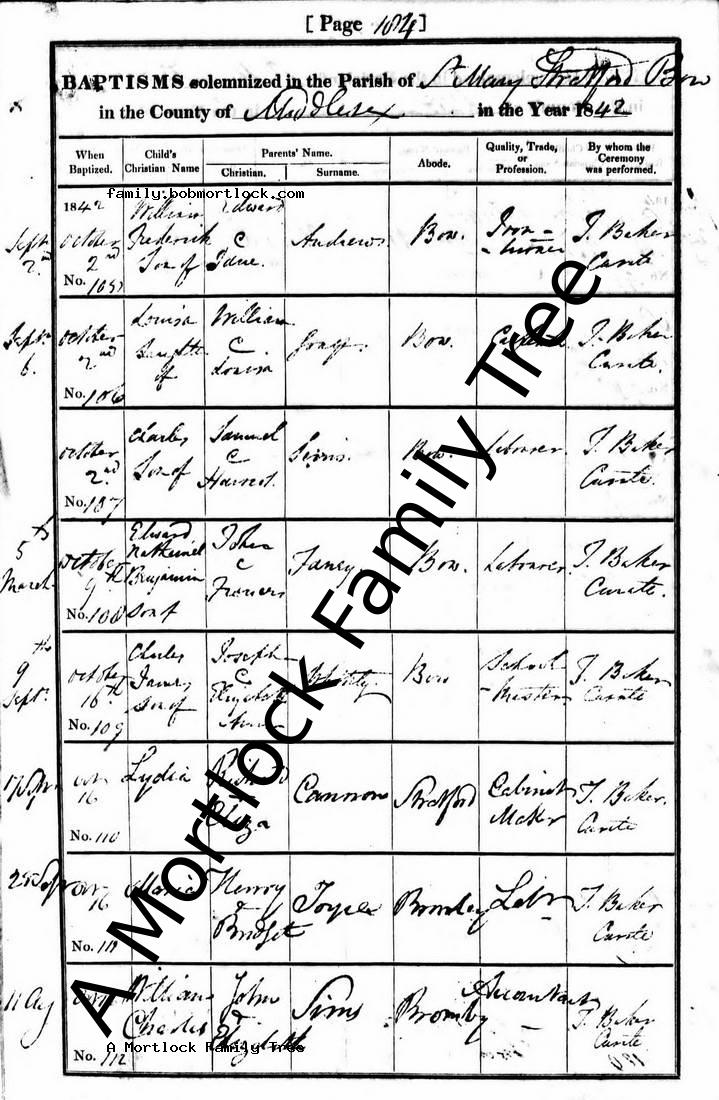 [ Page 104 ]
BAPTISMS solemnized in the Parish of St Mary Stratford Bow
in the County of Middlesex in the Year 1842
When Baptized. Child's Christian Name Parents' Name. Christian. Surname. Abode. Quality, Trade, or Profession. By whom the Ceremony was performed.
family.bobmortlock.com
1842 William Edward
Sept 2nd October 2nd Frederick Son of & Jane. Andrews Bow. Iron- J. Baker Curate
No. 105
Sept 6. October 2nd Louisa Daughter of William & Louisa Bow. J. Baker Curate.
No. 106
October 2nd Charles Son of Samuel & Harriet. Bow. Labourer. J. Baker Curate.
No. 107
5th March October 9th Edward Nathaniel Benjamin Son of John & Frances Bow. Labourer J. Baker Curate.
No. 108
9th Sept. October 16th Charles James Son of Joseph & Elizabeth Bow School Master J. Baker Curate
No. 109
Oct 16 Lydia Richard & Eliza Cannon Stratford Cabinet Maker J. Baker. Curate
No. 110
Oct 16 Maria Henry & Bridget Joyce Bromley Labr J. Baker Curate
No. 111
11 Aug William Charles John & Elizabeth Sims Bromley Accountant J. Baker Curate
No. 112
A Mortlock Family Tree
A Mortlock Family Tree